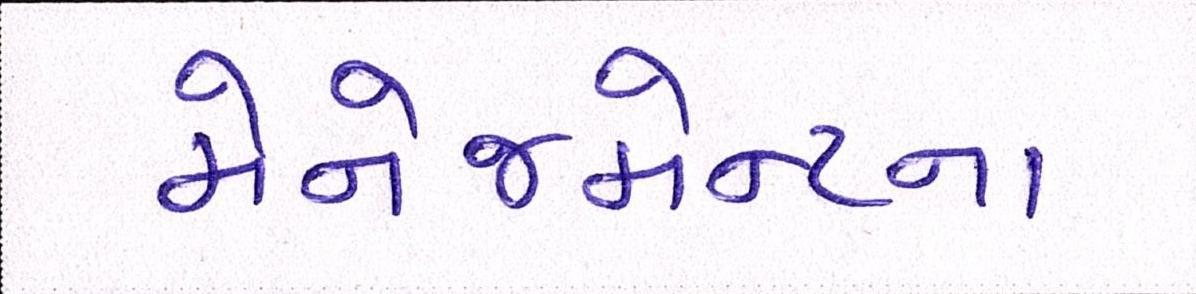 મેનેજમેન્ટના